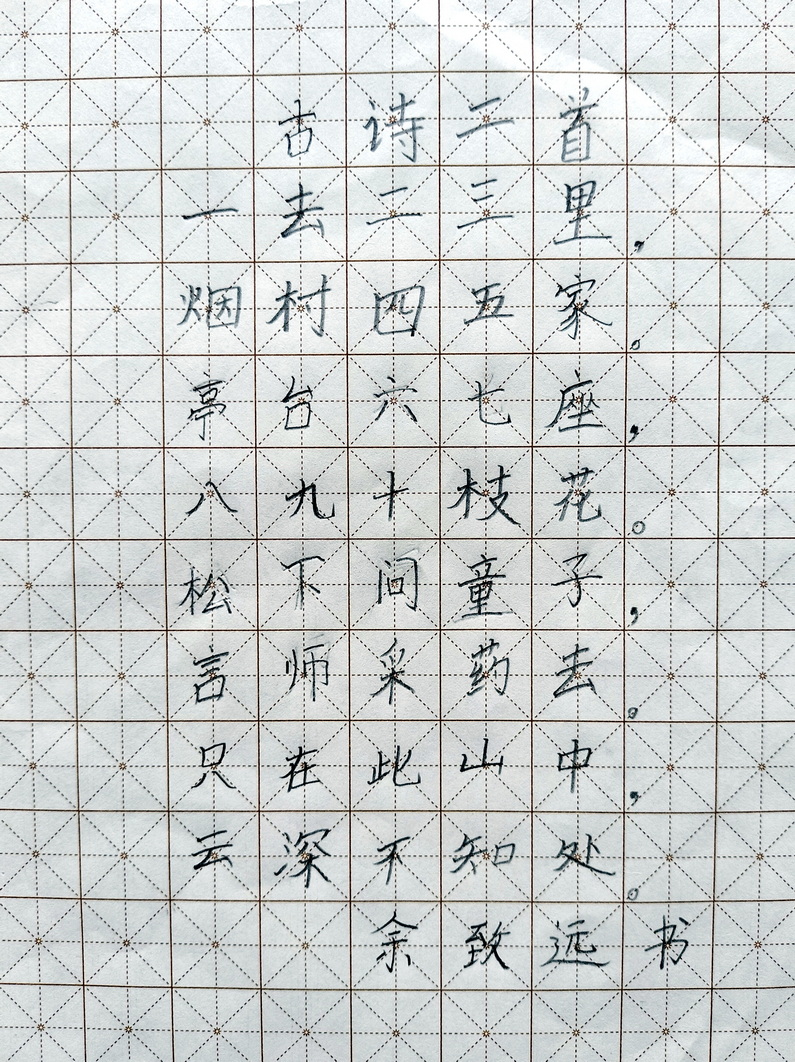 古诗二首
一去二三里，
烟村四五家。
亭台六七座，
八九十枝花。
松下问童子，
言师采药去。
只在此山中，
云深不知处。
余致远书